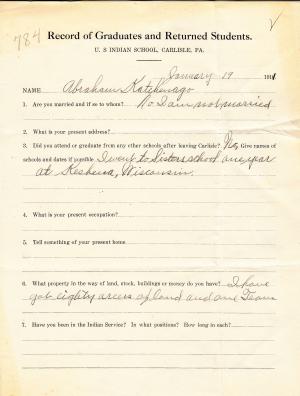 784
Record of Graduates and Returned Students.
U. S INDIAN SCHOOL, CARLISLE, PA.
January 19 1911
NAME Abraham Katchenago
1. Are you married and if so to whom? No I am not married
2. What is your present address?
3. Did you attend or graduate from any other schools after leaving Carlisle? No, Give names of
schools and dates if possible I went to Sisters school one year
at Keshena, Wisconsin.
4. What is your present occupation?
5. Tell something of your present home.
6. What property in the way of land, stock, buildings or money do you have? I have
got eighty acers of land and one Team
7. Have you been in the Indian Service? In what positions? How long in each?